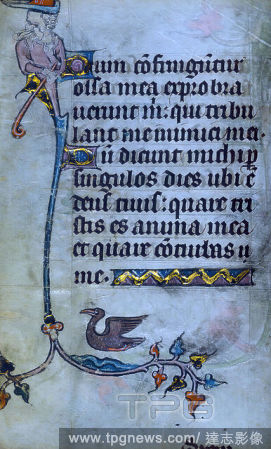 Dum cōfringūtur
ossa mea exprobra
uerunt m: qui tribu
lant me inimici mei.
Dū dicunt michi p
singulos dies ubi ē
deus tuus: quare tri
stis es anima mea
et quare cōturbas
me.
TPG
www.tpgnews.com/ 達志影像